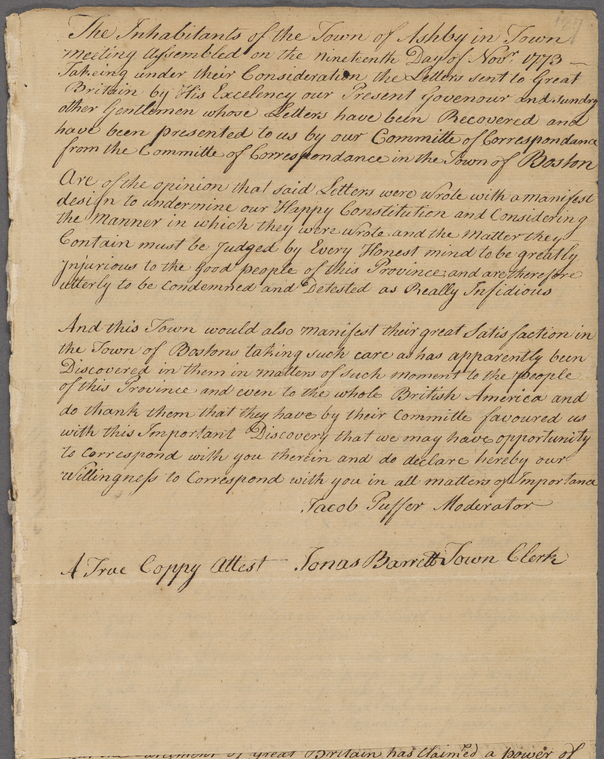 The Inhabitants of the Town of Ashby in Town
meeting Assembled on the nineteenth Day of Novr. 1773 —
Takeing under their Consideration the Letters sent to Great
Britain by His Excelency our Present Govenour and sundry
other Gentlemen whose Letters have been Recovered and
have been presented to us by our Committe of Correspondance
from the Committe of Correspondance in the Town of Boston
Are of the opinion that said Letters were wrote with a manifest
design to undermine our Happy Constitution and Considering
the Manner in which they were wrote and the Matter they
Contain must be Judged by Every Honest mind to be greatly
Injurious to the good people of this Province and are therefore
utterly to be Condemned and Detested as Really Insidious
And this Town would also manifest their great Satisfaction in
the Town of Bostons taking such care as has apparently been
Discovered in them in matters of such moment to the people
of this Province and even to the whole British America and
do thank them that they have by their Committe favoured us
with this Important Discovery that we may have opportunity
to Correspond with you therein and do declare hereby our
Willingness to Correspond with you in all matters of Importance
Jacob Puffer Moderator
A True Coppy Attest — Jonas Barrett Town Clerk
of Great Britain has Claimed a power of